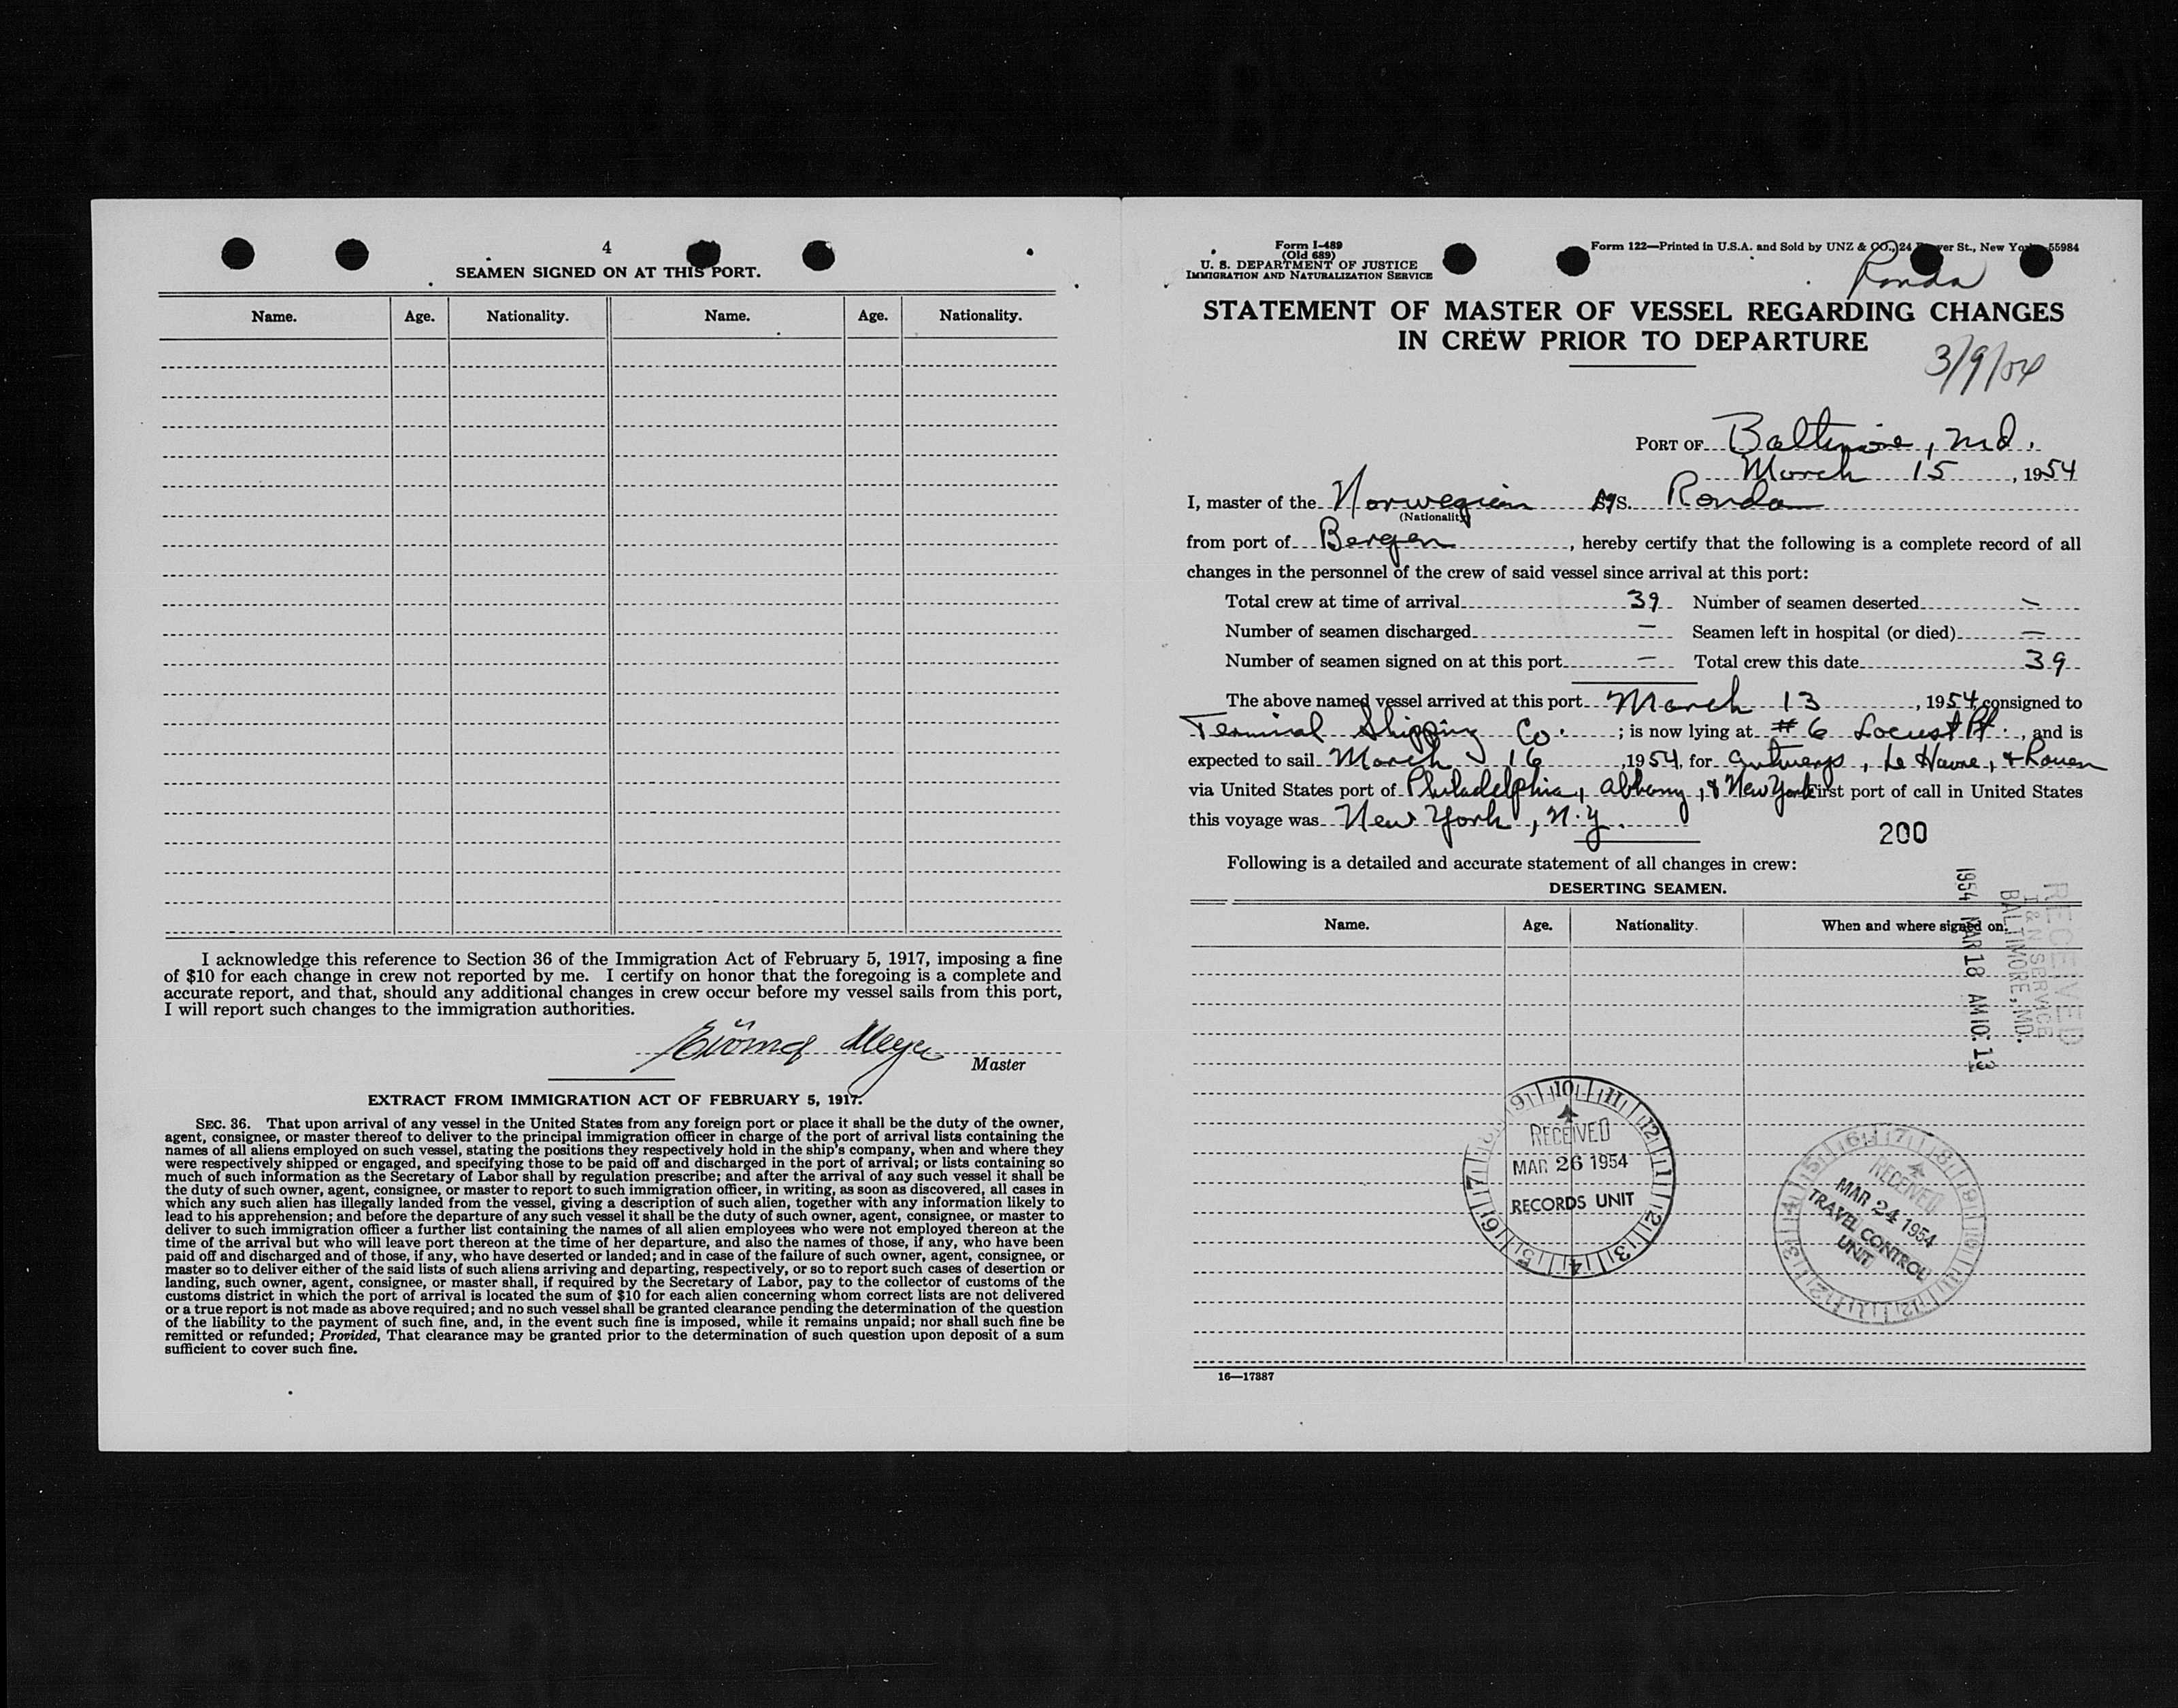 4
SEAMEN SIGNED ON AT THIS PORT.
Name. Age. Nationality. Name. Age. Nationality.
I acknowledge this reference to Section 36 of the Immigration Act of February 5, 1917, imposing a fine
of $10 for each change in crew not reported by me. I certify on honor that the foregoing is a complete and
accurate report, and that, should any additional changes in crew occur before my vessel sails from this port,
I will report such changes to the immigration authorities.
Meyer
Master
EXTRACT FROM IMMIGRATION ACT OF FEBRUARY 5, 1917.
SEC. 36. That upon arrival of any vessel in the United States from any foreign port or place it shall be the duty of the owner,
agent, consignee, or master thereof to deliver to the principal immigration officer in charge of the port of arrival lists containing the
names of all aliens employed on such vessel, stating the positions they respectively hold in the ship's company, when and where they
were respectively shipped or engaged, and specifying those to be paid off and discharged in the port of arrival; or lists containing so
much of such information as the Secretary of Labor shall by regulation prescribe; and after the arrival of any such vessel it shall be
the duty of such owner, agent, consignee, or master to report to such immigration officer, in writing, as soon as discovered, all cases in
which any such alien has illegally landed from the vessel, giving a description of such alien, together with any information likely to
lead to his apprehension; and before the departure of any such vessel it shall be the duty of such owner, agent, consignee, or master to
deliver to such immigration officer a further list containing the names of all alien employees who were not employed thereon at the
time of the arrival but who will leave port thereon at the time of her departure, and also the names of those, if any, who have been
paid off and discharged and of those, if any, who have deserted or landed; and in case of the failure of such owner, agent, consignee, or
master so to deliver either of the said lists of such aliens arriving and departing, respectively, or so to report such cases of desertion or
landing, such owner, agent, consignee, or master shall, if required by the Secretary of Labor, pay to the collector of customs of the
customs district in which the port of arrival is located the sum of $10 for each alien concerning whom correct lists are not delivered
or a true report is not made as above required; and no such vessel shall be granted clearance pending the determination of the question
of the liability to the payment of such fine, and, in the event such fine is imposed, while it remains unpaid; nor shall such fine be
remitted or refunded; Provided, That clearance may be granted prior to the determination of such question upon deposit of a sum
sufficient to cover such fine.
Form I-489
(Old 689)
U. S. DEPARTMENT OF JUSTICE
IMMIGRATION AND NATURALIZATION SERVICE
Form 122—Printed in U.S.A. and Sold by UNZ & CO., 24 St., New 55984
Ronda
STATEMENT OF MASTER OF VESSEL REGARDING CHANGES
IN CREW PRIOR TO DEPARTURE
3/9/54
PORT OF Baltimore, Md.
March 15, 1954
I, master of the Norwegian S. Ronda
(Nationality)
from port of Bergen, hereby certify that the following is a complete record of all
changes in the personnel of the crew of said vessel since arrival at this port:
Total crew at time of arrival 39 Number of seamen deserted —
Number of seamen discharged — Seamen left in hospital (or died) —
Number of seamen signed on at this port — Total crew this date 39
The above named vessel arrived at this port March 13, 1954, consigned to
Terminal Shipping Co.; is now lying at # 6 Locust Pt., and is
expected to sail March 16, 1954, for Antwerp, Le Havre, & Rouen
via United States port of Philadelphia, Albany, & New York First port of call in United States
this voyage was New York, N.Y.
200
Following is a detailed and accurate statement of all changes in crew:
DESERTING SEAMEN.
Name. Age. Nationality. When and where signed on.
RECEIVED
I & N SERVICE
BALTIMORE, MD.
1954 MAR 18 AM 10: 13
9 10 11 12 1 2 3 4 5 6 7 8
RECEIVED
MAR 26 1954
RECORDS UNIT
RECEIVED
MAR 24 1954
TRAVEL CONTROL
UNIT
16—17887